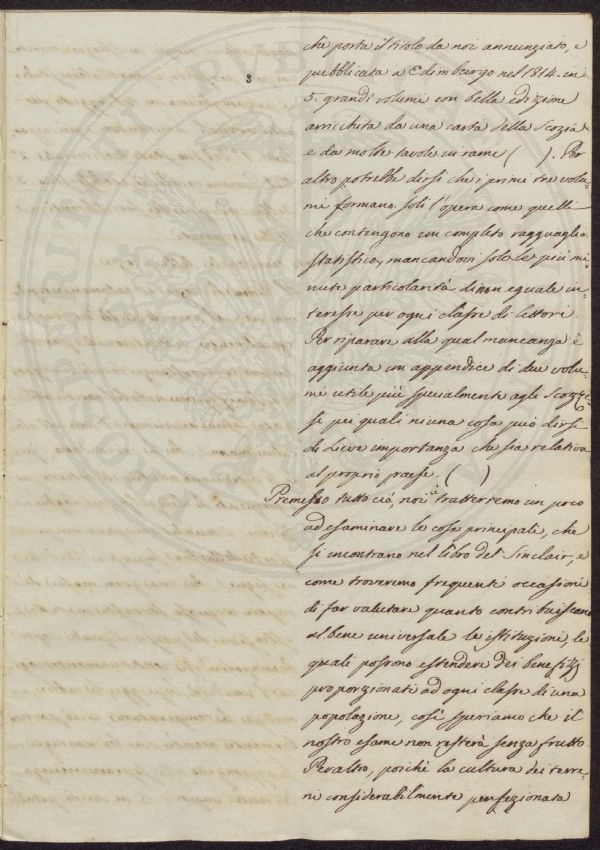 che porta il titolo da noi annunziato, e
pubblicata a Edimburgo nel 1814. in
8
5. grandi volumi con bella edizione
arricchita da una carta della Scozia
e da molte tavole in rame (   ). Per
altro potrebbe dirsi che i primi tre volu-
mi formano soli l'opera come quelli
che contengono un completo ragguaglio
statistico, mancandovi solo le più mi-
nute particolarità di non eguale in-
teresse per ogni classe di lettori.
Per riparare alla qual mancanza è
aggiunta un appendice di due volu-
mi utile più specialmente agli Scozze-
si pei quali niuna cosa può dirsi
di lieve importanza che sia relativa
al proprio paese. (   )
Premesso tutto ciò, noi ci tratterremo un poco
ad esaminare le cose principali, che
si incontrano nel libro del Sinclair, e
come troveremo frequenti occasioni
di far valutare quanto contribuiscano
al bene universale le istituzioni, le
quali possono estendere dei benefizj
proporzionati ad ogni classe di una
popolazione, così speriamo che il
nostro esame non resterà senza frutto.
Peraltro, poichè la cultura dei terre-
ni considerabilmente perfezionata